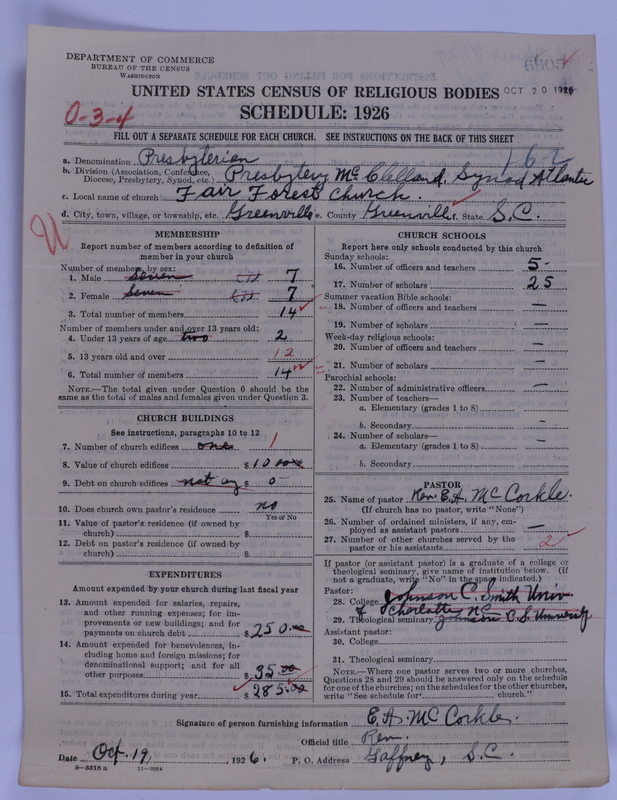 DEPARTMENT OF COMMERCE
BUREAU OF THE CENSUS
WASHINGTON
UNITED STATES CENSUS OF RELIGIOUS BODIES OCT 20 1926
0-3-4
SCHEDULE: 1926
FILL OUT A SEPARATE SCHEDULE FOR EACH CHURCH. SEE INSTRUCTIONS ON THE BACK OF THIS SHEET
a. Denomination Presbyterian
b. Division (Association, Conference, Diocese, Presbytery, Synod, etc.) Presbytery McClelland, Synod Atlantic
c. Local name of church Fair Forest Church.
d. City, town, village, or township, etc. Greenville e. County Greenville f. State S.C.
MEMBERSHIP
Report number of members according to definition of
member in your church
Number of members, by sex:
1. Male seven (7) 7
2. Female seven (7) 7
3. Total number of members 14
Number of members under and over 13 years old:
4. Under 13 years of age two 2
5. 13 years old and over 12
6. Total number of members 14
NOTE.—The total given under Question 6 should be the
same as the total of males and females given under Question 3.
CHURCH BUILDINGS
See instructions, paragraphs 10 to 12
7. Number of church edifices one 1
8. Value of church edifices $
9. Debt on church edifices not any $ 0
10. Does church own pastor's residence no
Yes or No
11. Value of pastor's residence (if owned by
church) $
12. Debt on pastor's residence (if owned by
church) $
EXPENDITURES
Amount expended by your church during last fiscal year
13. Amount expended for salaries, repairs,
and other running expenses; for im-
provements or new buildings; and for
payments on church debt $ 250.00
14. Amount expended for benevolences, in-
cluding home and foreign missions; for
denominational support; and for all
other purposes $ 35.00
15. Total expenditures during year $ 285.00
CHURCH SCHOOLS
Report here only schools conducted by this church
Sunday schools:
16. Number of officers and teachers 5
17. Number of scholars 25
Summer vacation Bible schools:
18. Number of officers and teachers —
19. Number of scholars —
Week-day religious schools:
20. Number of officers and teachers —
21. Number of scholars —
Parochial schools:
22. Number of administrative officers —
23. Number of teachers—
a. Elementary (grades 1 to 8)
b. Secondary —
24. Number of scholars—
a. Elementary (grades 1 to 8) —
b. Secondary
PASTOR
25. Name of pastor Rev. E.A. McCorkle.
(If church has no pastor, write "None")
26. Number of ordained ministers, if any, em-
ployed as assistant pastors —
27. Number of other churches served by the
pastor or his assistants 2
If pastor (or assistant pastor) is a graduate of a college or
theological seminary, give name of institution below. (If
not a graduate, write "No" in the space indicated.)
Pastor:
28. College Johnson C. Smith Univ.
of Charlotte NC
29. Theological seminary Johnson C. S. University
Assistant pastor:
30. College
31. Theological seminary
NOTE.—Where one pastor serves two or more churches,
Questions 28 and 29 should be answered only on the schedule
for one of the churches; on the schedules for the other churches,
write "See schedule for church."
Signature of person furnishing information E.A. McCorkle.
Official title Rev.
Date Oct. 19, 1926. P. O. Address Gaffney, S.C.
8-5518 a 11-9064